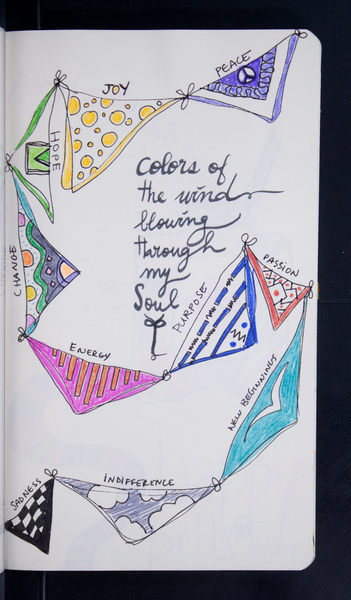 PEACE
JOY
HOPE
Colors of
the wind
blowing
through
my
Soul
CHANGE
PURPOSE
PASSION
ENERGY
NEW BEGINNINGS
INDIFFERENCE
SADNESS